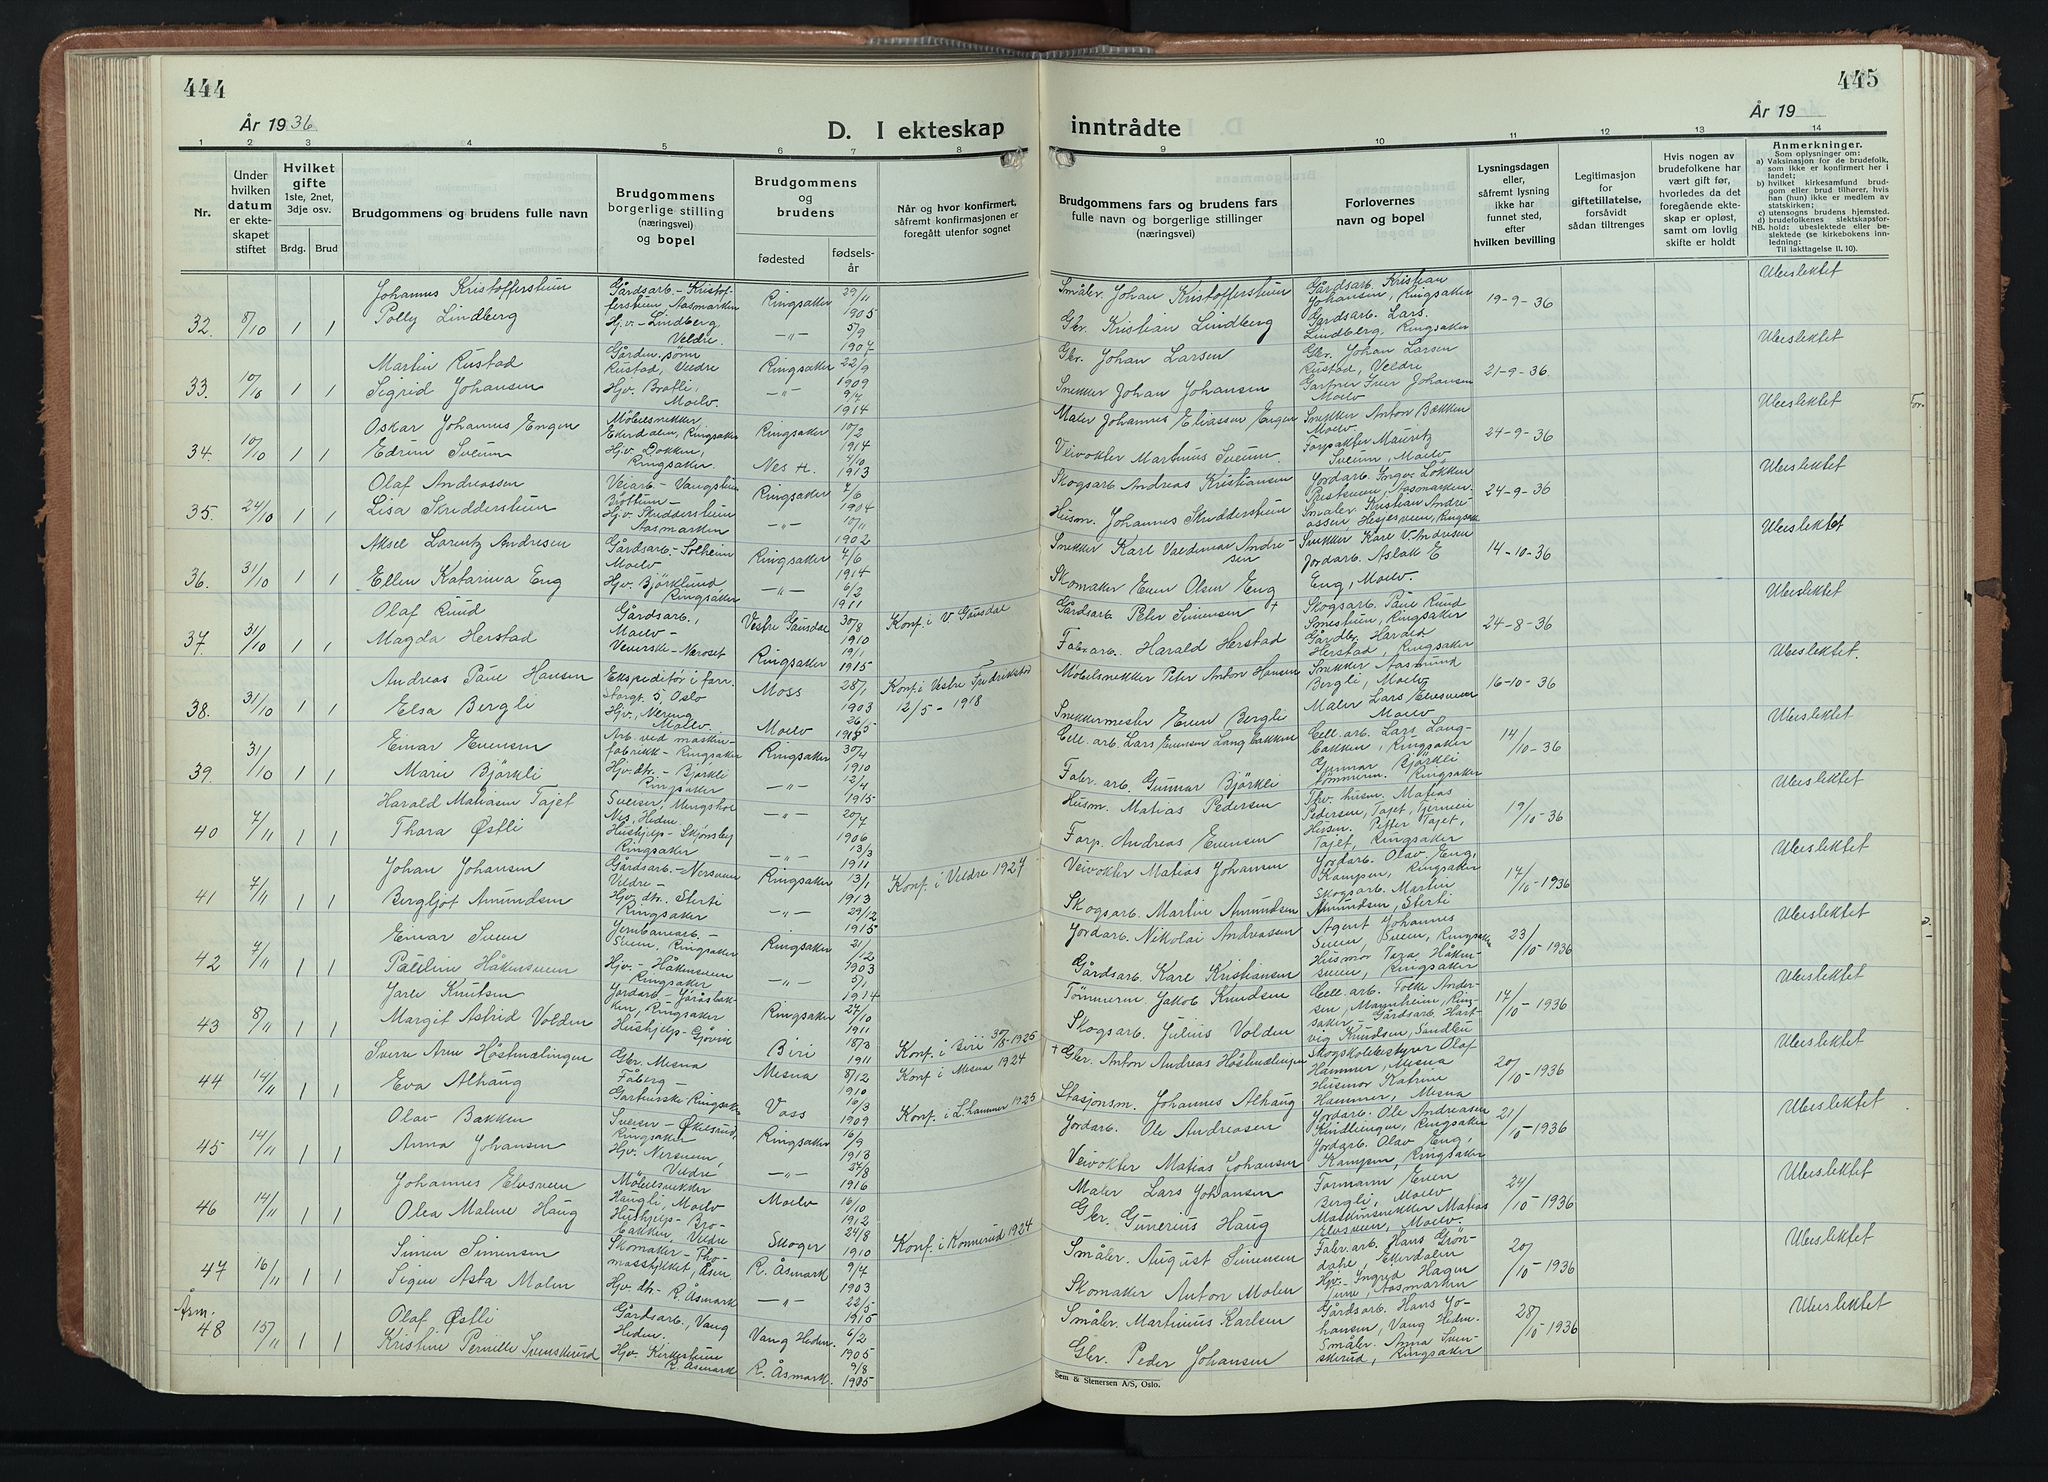 444
År 1936
D. I ekteskap
1
2
3
4
5
6
7
8
Nr.
Under hvilken datum er ekteskapet stiftet
Hvilket gifte 1ste, 2net, 3dje osv.
Brdg.
Brud
Brudgommens og brudens fulle navn
Brudgommens borgerlige stilling (næringsvei) og bopel
Brudgommens og brudens
fødested
fødselsår
Når og hvor konfirmert, såfremt konfirmasjonen er foregått utenfor sognet
32. 8/10 1 1
Johannes Kristofferstuen
Polly Lindberg
Gårdsarb. - Kristofferstuen Aasmarken
Hjv. - Lindberg Veldre
Ringsaker
-"-
29/11 1905
5/9 1907
33. 10/10 1 1
Martin Rustad
Sigrid Johansen
Gården. sønn Rustad, Veldre
Hjv. Bratli, Moelv.
Ringsaker
-"-
22/9 1909
9/7 1914
34. 10/10 1 1
Oskar Johannes Engen
Edrun Sveum
Møbelsnekker Ekerdalen, Ringsaker
Hjv. Dokken, Ringsaker.
Ringsaker
Nes H.
10/2 1914
4/10 1913
35. 24/10 1 1
Olaf Andreassen
Lisa Skredderstuen
Veiarb. - Vangstuen Brøttum -
Hjv. Skredderstuen Aasmarken
Ringsaker
-"-
7/6 1904
10/11 1902
36. 31/10 1 1
Aksel Lorentz Andresen
Ellen Katarina Eng
Gårdsarb. - Solheim Moelv
Hjv. Bjørklund Ringsaker
Ringsaker
-"-
7/6 1914
6/2 1911
37. 31/10 1 1
Olaf Ruud
Magda Herstad
Gårdsarb., Moelv -
Veverske - Næroset
Vestre Gausdal
Ringsaker
30/8 1910
19/1 1915
Konf. i V. Gausdal
38. 31/10 1 1
Andreas Paul Hansen
Elsa Bergli
Ekspeditør i farr. Storgt. 5, Oslo
Hjv., Nering Moelv.
Moss
Moelv
28/1 1903
26/5
Konf. i Vestre Fredrikstad 12/5 - 1918
39. 31/10 1 1
Einar Evensen
Marie Bjørkli
Arb. ved maskinfabrikk - Ringsaker
Hjv. dtr. - Bjørkli Ringsaker
Ringsaker
-"-
30/4 1910
12/4 1915
40 7/11 1 1
Harald Matiasen Tajet
Thora Østli
Sveiser, Mengshol Nes, Hedm.
Hushjelp - Skønsby Ringsaker
-"-
-"-
20/7 1906
13/3 1911
41 7/11 1 1
Johan Johansen
Bergljot Amundsen
Gårdsarb. - Nersveen Veldre -
Hjv. dtr. Sterti Ringsaker
Ringsaker
-"-
13/1 1913
29/12 1915
Konf. i Veldre 1927
42 7/11 1 1
Einar Sveen
Pauline Håkensveen
Jernbanearb. - Sveen, Ringsaker
Hjv. - Håkensveen Ringsaker
Ringsaker
-"-
21/12 1903
5/1 1914
43 8/11 1 1
Jarle Knutsen
Margit Astrid Volden
Jordarb. - Jøråsbakken, Ringsaker
Hushjelp - Gjøvik
Ringsaker
Biri
27/10 1911
18/3 1911
Konf. i Biri 30/8 - 1925
44 14/11 1 1
Sverre Arne Høstmælingen
Eva Alhaug
Gbr. Mesna Fåberg -
Gartnerske Ringsaker
Mesna
Voss
8/12 1910
16/3 1909
Konf. i Mesna 1924
Konf. i L.hammer 1925
45 14/11 1 1
Olav Bakken
Anna Johansen
Sveiser - Økelsrud, Ringsaker
Hjv. Nersveen, Veldre
Ringsaker
-"-
16/9 1913
27/8 1916
46 14/11 1 1
Johannes Elvsveen
Olea Malene Haug
Møbelsnekker Haugli, Moelv
Hushjelp - Brobakken, Veldre
Moelv
Skoger
16/10 1912
24/8 1910
Konf. i Konnerud 1924
47 16/11 1 1
Simen Simensen
Signe Asta Molen
Skomaker - Thomasstykket, Åsm.
Hjv. dtr. R. Åsmark
R. Åsmark
-"-
9/7 1903
22/5 1915
Åsm. 48 15/11 1 1
Olaf Østli
Kristine Pernille Svenskerud
Gårdsarb., Vang Hedm.
Hjv. Kirkestuen R. Åsmark
Vang Hedm.
R. Åsmark.
6/2 1905
9/8 1905
445
År 19
inntrådte
9
10
11
12
13
14
Brudgommens fars og brudens fars fulle navn og borgerlige stillinger (næringsvei)
Forlovernes navn og bopel
Lysningsdagen eller, såfremt lysning ikke har funnet sted, efter hvilken bevilling
Legitimasjon for giftetillatelse, forsåvidt sådan tiltrenges
Hvis nogen av brudefolkene har vært gift før, hvorledes da det foregående ekteskap er opløst, samt om lovlig skifte er holdt
Anmerkninger.
Som oplysninger om:
a) Vaksinasjon for de brudefolk, som ikke er konfirmert her i landet;
b) hvilket kirkesamfund brudgom eller brud tilhører, hvis han (hun) ikke er medlem av statskirken;
c) utensogns brudens hjemsted.
d) brudefolkenes slektskapsforhold: ubeslektede eller beslektede (se kirkebokens innledning:
NB.
Til iakttagelse II. 10).
Småbr. Johan Kristofferstuen
Gbr. Kristian Lindberg
Gårdsarb. Kristian Johansen, Ringsaker
Gårdsarb. Lars. Lindberg, Ringsaker
19-9-36
Ubeslektet
Gbr. Johan Larsen
Snekker Johan Johansen
Gbr. Johan Larsen Rustad, Veldre
Gartner Iver Johansen Moelv
21-9-36.
Ubeslektet
Maler Johannes Eliassen Engen
Veivokter Martinus Sveum.
Snekker Anton Bækken Moelv.
Forpakter Mauritz Sveum, Moelv.
24-9-36
Ubeslektet
For.
Skogsarb. Andreas Kristiansen
Husm. Johannes Skredderstuen
Jordarb. Ingv. Løkken Prestsveen, Aasmarken.
Småbr. Kristian Andreassen, Hesjesveen, Ringsak
24-9-36
Ubeslektet
Snekker Karl Valdemar Andresen
Skomaker Even Olsen Eng
Snekker Karl V. Andresen
Jordarb. Aslak E Eng, Moelv.
14-10-36
Ubeslektet
Gårdsarb. Peter Simensen +
Fabr. arb. Harald Herstad
Skogsarb. Paul Ruud Smestuen, Ringsaker
Gårdbr. Harald Herstad, Ringsaker
24-8-36
Ubeslektet
Møbelsnekker Peter Anton Hansen
Snekkermester Even Bergli
Snekker Aasmund Bergli, Moelv
Maler Lars Elvesveen Moelv
16-10-36
Ubeslektet.
Cell. arb. Lars Evensen Langbakken
Fabr. arb. Gunnar Bjørkli
Cell. arb. Lars Langbakken, Ringsaker
Gunnar Bjørkli Tømmerm. Ringsaker
14/10-36
Ubeslektet
Husm. Matias Pedersen
Forp. Andreas Evensen
Fhv. husm. Matias Pedersen, Tajet,
Husm. Petter Tajet, Tajet, Ringsaker
19/10-36
Ubeslektet
Veivokter Matias Johansen
Skogsarb. Martin Amundsen
Jordarb. Olav Eng, Kampen, Ringsaker
Skogsarb. Martin Amundsen, Sterti
14/10-1936
Ubeslektet
Jordarb. Nikolai Andreassen
Gårdsarb. Karl Kristiansen
Agent Johannes Sveen, Sveen, Ringsaker
Husmor Tora Håkensveen, Ringsaker
23/10-1936
Ubeslektet
Tømmerm. Jakob Knudsen
Skogsarb. Julius Volden
Cell. arb. Folke Andersen, Mannheim, Ringsaker -
Gårdsarb. Hartvig Knudsen, Sandleu
17/10-1936
Ubeslektet
+ Gbr. Anton Andreas Høstmælingen
Stasjonsm. Johannes Alhaug
Skogskolebestyrer Olaf Hammer, Mesna
Husmor Katrine Hammer, Mesna
20/10-1936
Ubeslektet
Jordarb. Ole Andreasen
Veivokter Matias Johansen
Jordarb. Ole Andreasen Kindlungen, Ringsaker
Jordarb. Olav Eng, Kampen, Ringsaker
21/10-1936
Ubeslektet
Maler Lars Johansen
Gbr. Gunerius Haug
Formann Even Bergli, Moelv
Maskinsnekker Matias Elvsveen, Moelv.
24/10-1936
Ubeslektet
Småbr. August Simensen
Skomaker Anton Molen
Fabr. arb. Hans Grøndahl, Ekerdalen
Hjv. Ingrid Hagen Aasmarken
20/10-1936
Ubeslektet
Småbr. Martinius Karlsen
Gbr. Peder Johansen
Gårdsarb. Hans Johansen, Vang Hedm.
Småbr. Anna Svenskerud, Ringsaker
28/10-1936
Ubeslektet
Sem & Stenersen A/S, Oslo.